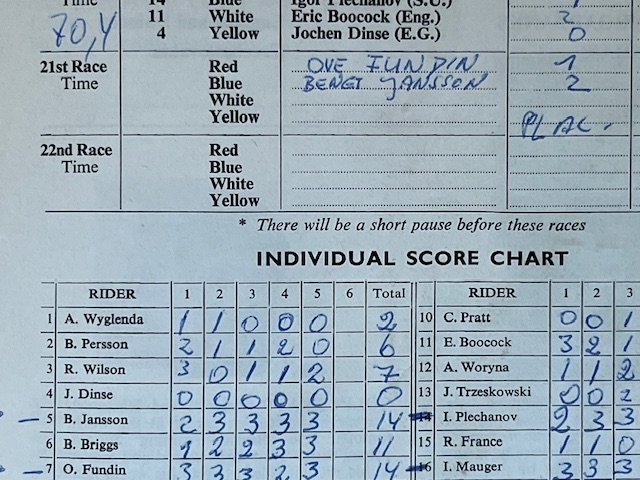 Time 14 Blue Igor Plechanov (S.U.) 1
11 White Eric Boocock (Eng.) 2
70,4 4 Yellow Jochen Dinse (E.G.) 0
21st Race Red OVE FUNDIN 1
Time Blue BENGT JANSSON 2
White
Yellow PLAC.
22nd Race Red
Time Blue
White
Yellow
* There will be a short pause before these races
INDIVIDUAL SCORE CHART
RIDER 1 2 3 4 5 6 Total RIDER 1 2 3
1 A. Wyglenda 1 1 0 0 0 2 10 C. Pratt 0 0 1
2 B. Persson 2 1 1 2 0 6 11 E. Boocock 3 2 1
3 R. Wilson 3 0 1 1 2 7 12 A. Woryna 1 1 2
4 J. Dinse 0 0 0 0 0 0 13 J. Trzeskowski 0 0 2
5 B. Jansson 2 3 3 3 3 14 14 I. Plechanov 2 3 3
6 B. Briggs 1 2 2 3 3 11 15 R. France 1 1 0
7 O. Fundin 3 3 3 2 3 14 16 I. Mauger 3 3 3